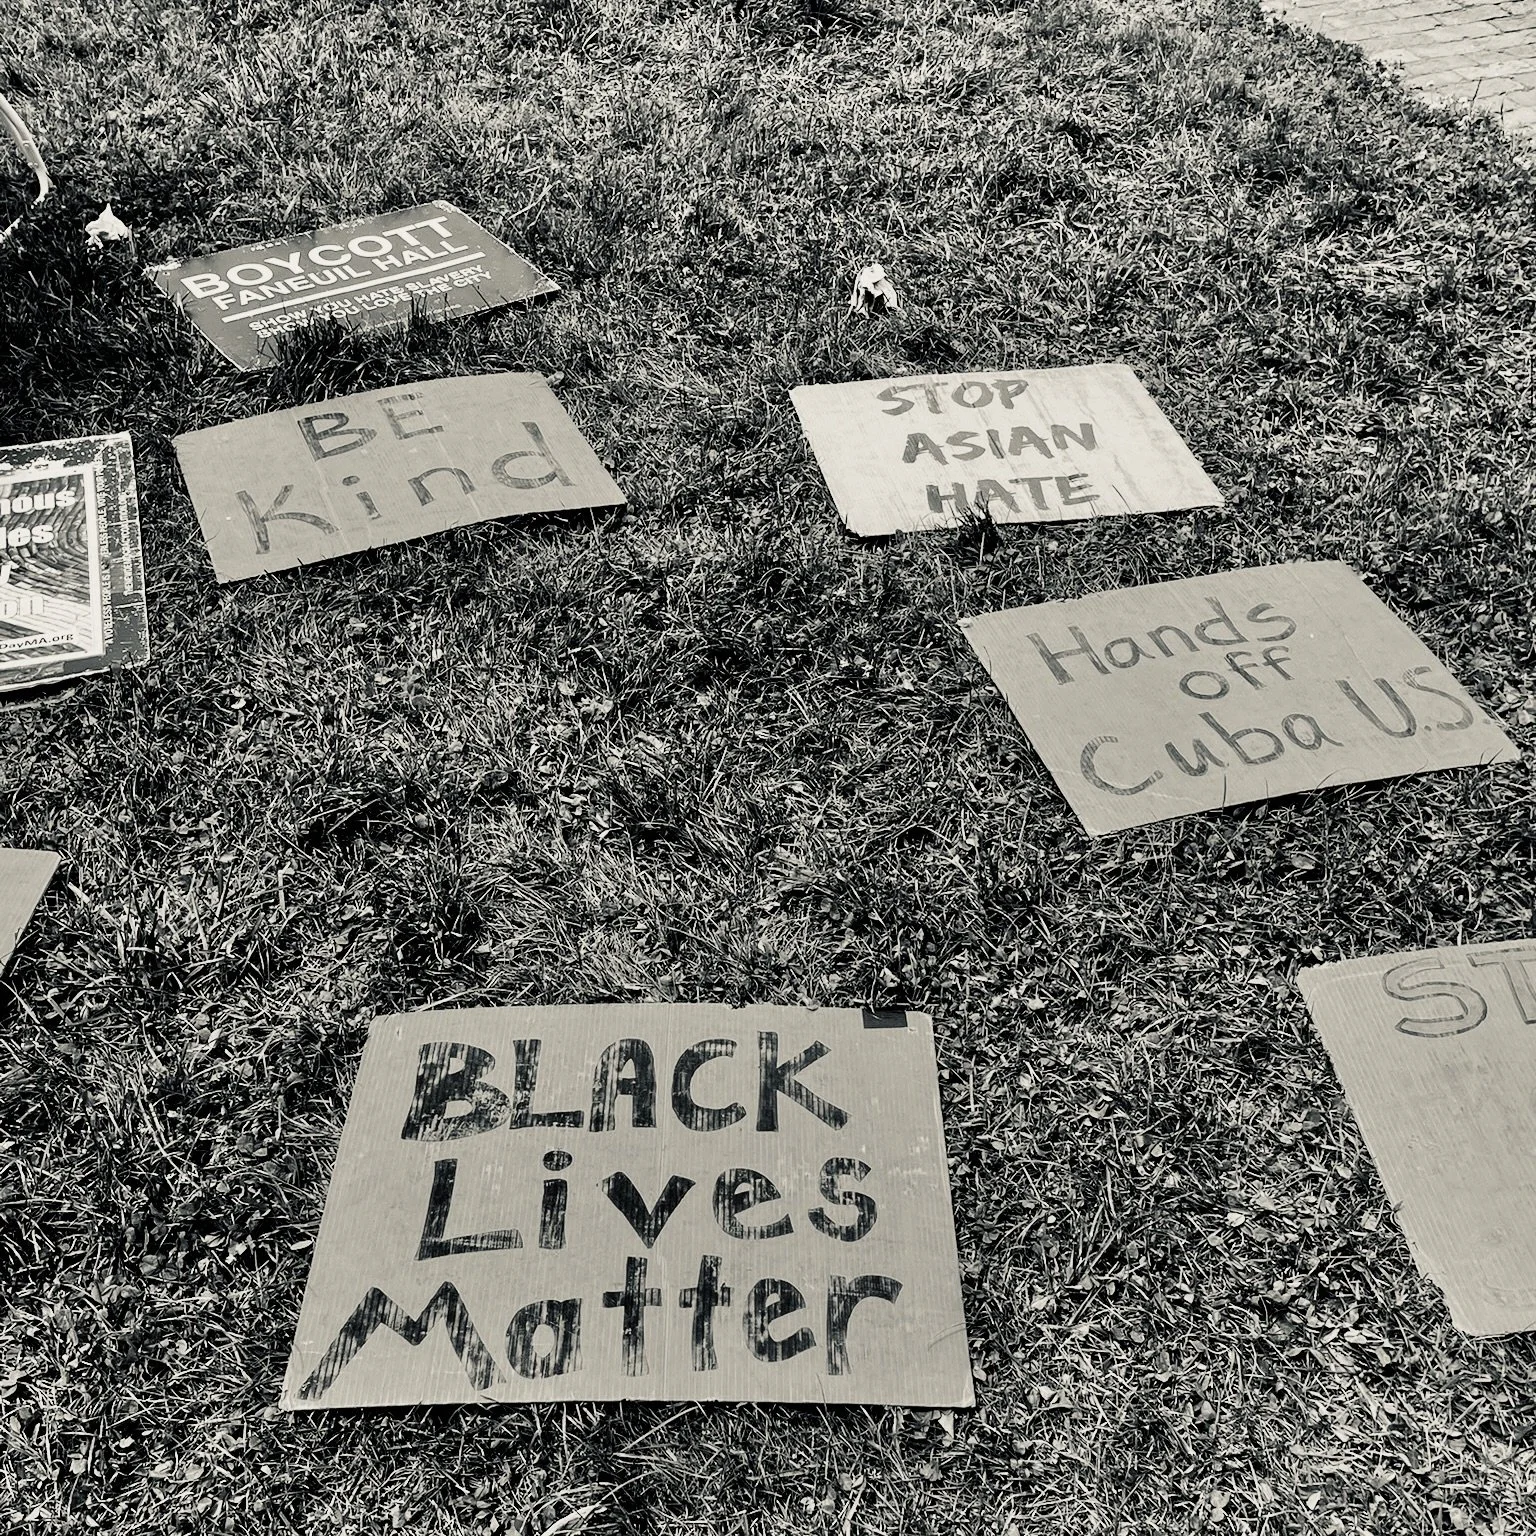 BOYCOTT
FANEUIL HALL
SHOW YOU HATE SLAVERY
SHOW YOU LOVE THE CITY
BE
Kind
STOP
ASIAN
HATE
DayMA.org
Hands
off
Cuba U.S.
BLACK
Lives
Matter